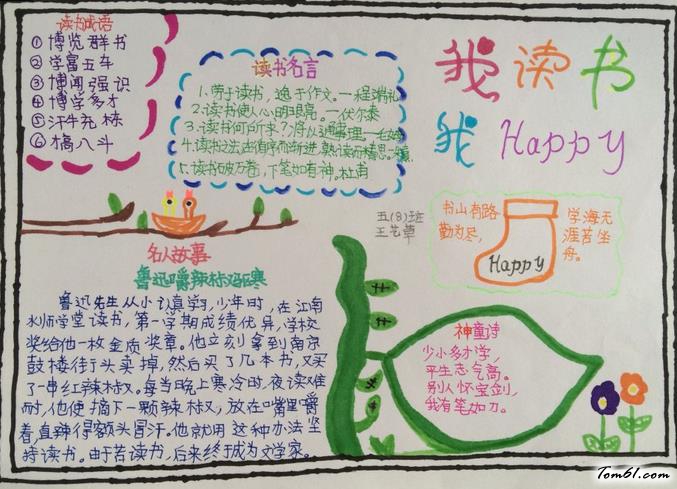 读书成语
①博览群书
②学富五车
③博闻强识
④博学多才
⑤汗牛充栋
⑥槁八斗
读书名言
1.劳于读书,逸于作文。—程端礼
2.读书使人心明眼亮。—伏尔泰
3.读书何所求?将以通事理。—
4.读书之法当循序而渐进,熟读而精思。
5.读书破万卷,下笔如有神。杜甫
我读书
我Happy
五(8)班
书山有路
勤为尽,
学海无
涯苦坐
舟。
Happy
名人故事
鲁迅嚼辣椒驱寒
鲁迅先生从小认真学习,少年时,在江南
水师学堂读书,第一学期成绩优异,学校
奖给他一枚金质奖章。他立刻拿到南京
鼓楼街头卖掉,然后买了几本书,又买
了一串红辣椒。每当晚上寒冷时,夜读难
耐,他便摘下一颗辣椒,放在口嘴里嚼
着,直辣得额头冒汗。他就用这种办法坚
持读书。由于苦读书,后来终于成为文学家。
神童诗
少小多才学,
平生志气高。
别人怀宝剑,
我有笔如刀。
Tom61.com